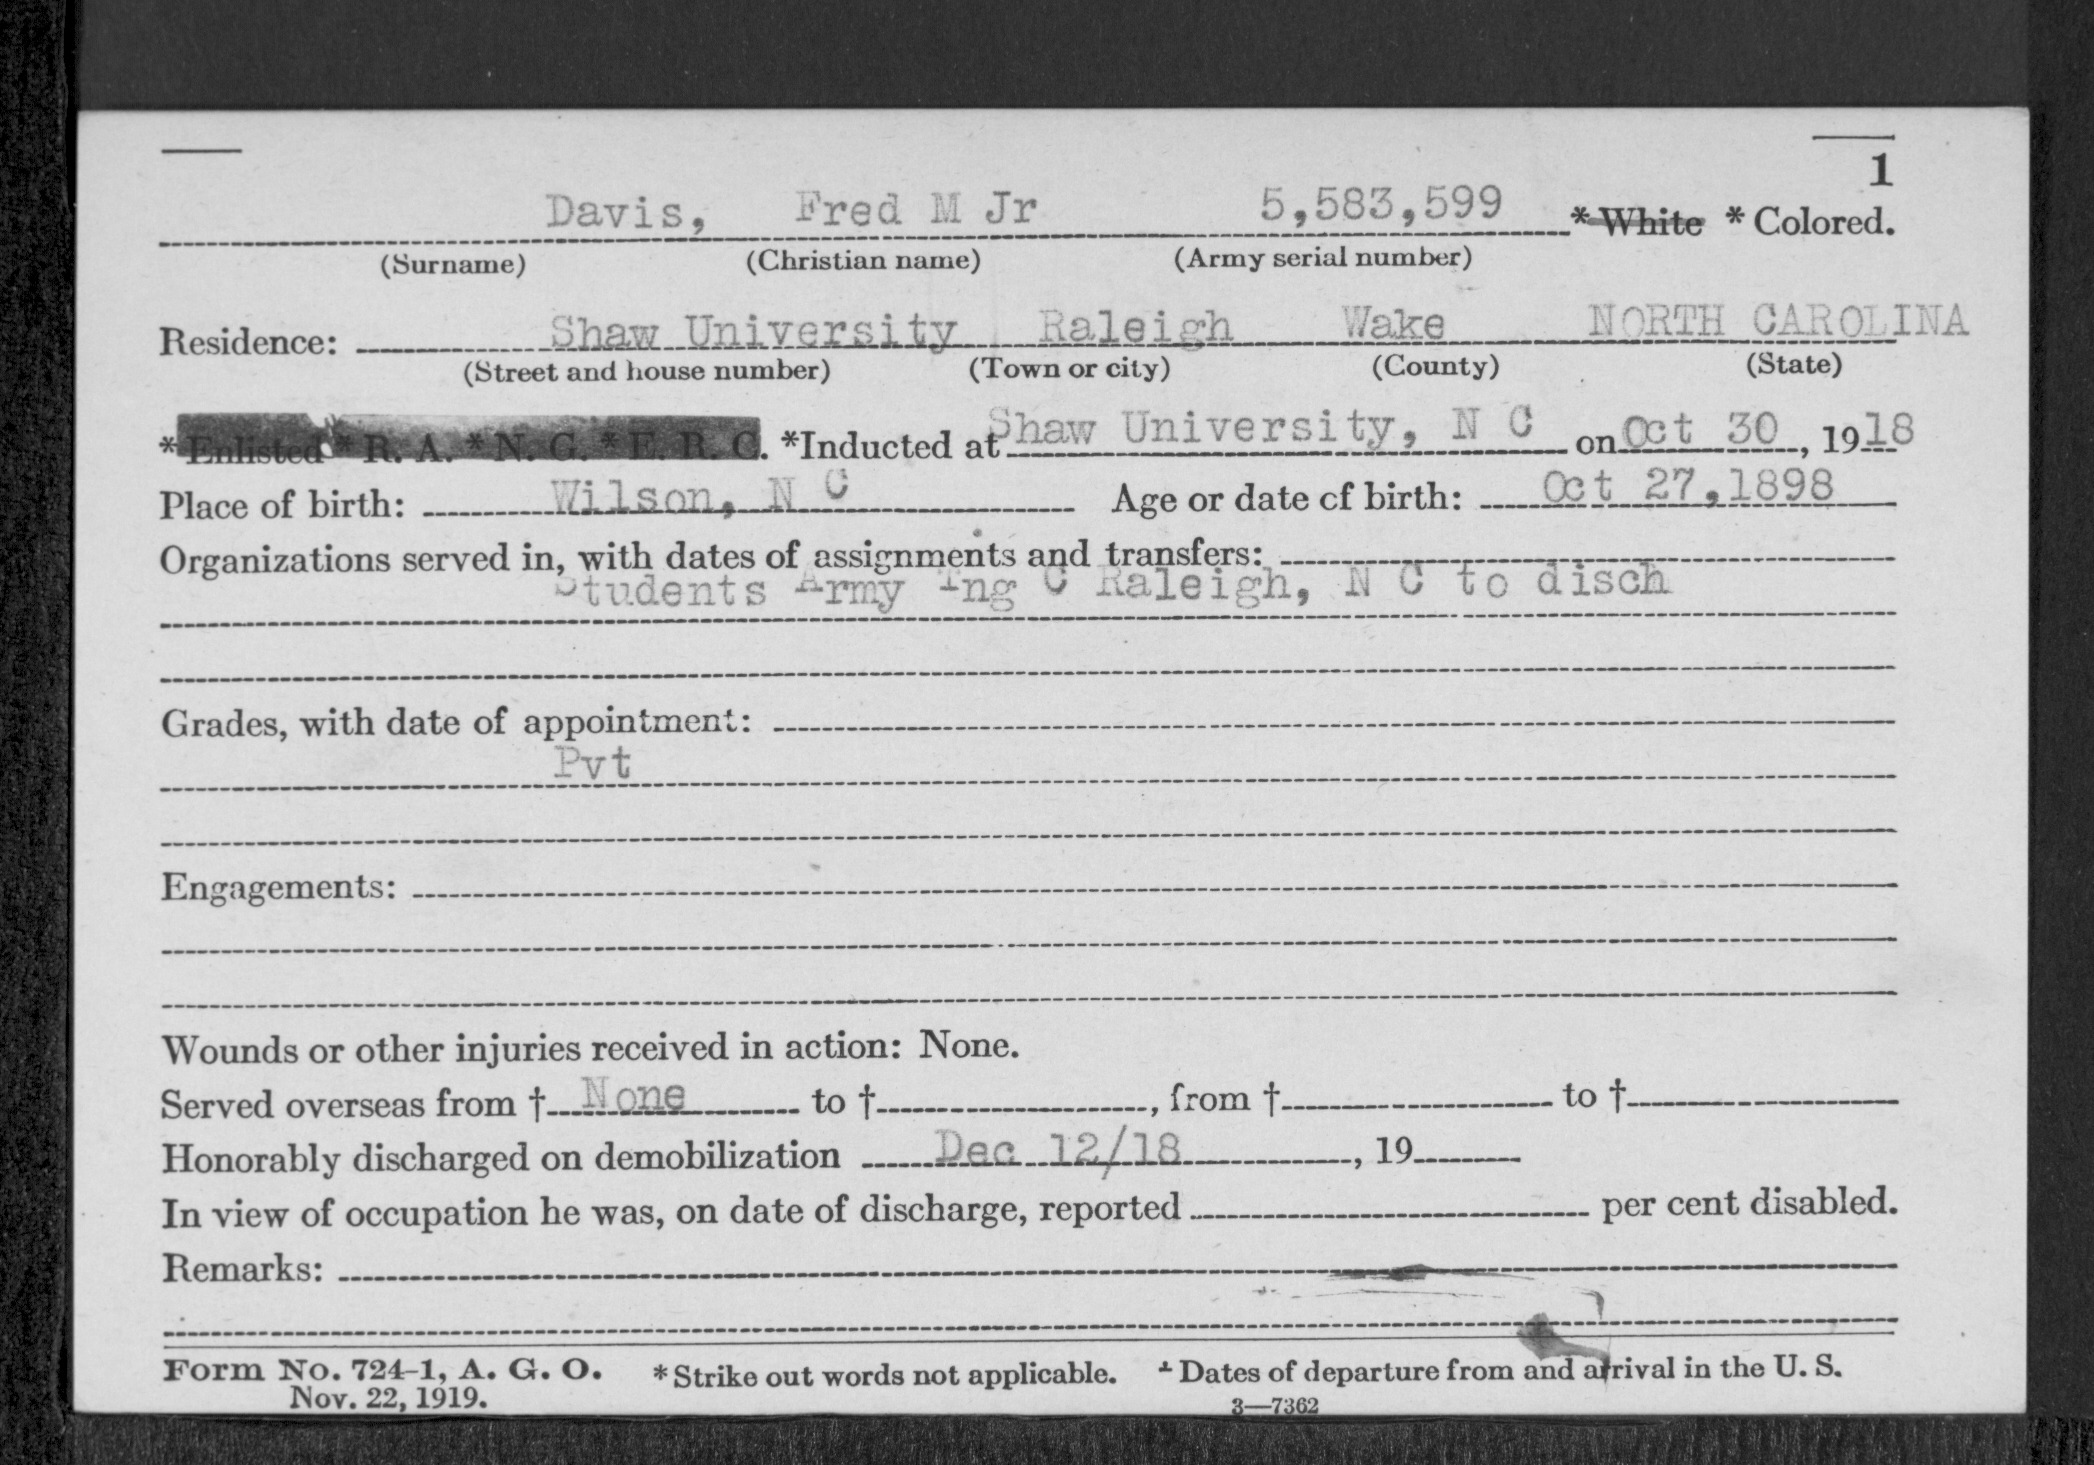 1
Davis, Fred M Jr 5,583,599 * White * Colored.
(Surname) (Christian name) (Army serial number)
Residence: Shaw University Raleigh Wake NORTH CAROLINA
(Street and house number) (Town or city) (County) (State)
* Enlisted * R. A. * N. G. * E. R. C. *Inducted at Shaw University, N C on Oct 30, 1918
Place of birth: Wilson, N C Age or date of birth: Oct 27,1898
Organizations served in, with dates of assignments and transfers:
Students Army Tng C Raleigh, N C to disch
Grades, with date of appointment:
Pvt
Engagements:
Wounds or other injuries received in action: None.
Served overseas from † None to †, from † to †
Honorably discharged on demobilization Dec 12/18, 19
In view of occupation he was, on date of discharge, reported per cent disabled.
Remarks:
Form No. 724-1, A. G. O. * Strike out words not applicable. † Dates of departure from and arrival in the U. S.
Nov. 22, 1919. 3—7362